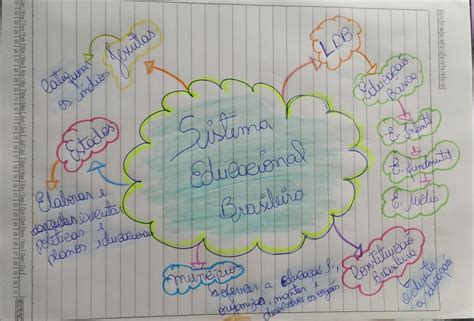 Sistema
Educacional
Brasileiro
Jesuítas
Catequizar
os índios
Estados
Elaborar e
executar
políticas e
planos educacionais
município
oferecer a educação,
organizar, manter e
LDB
Educação
Básica
E. Infantil
E. fundamental
E. Médio
Constituição
Brasileira
O direito
a educação